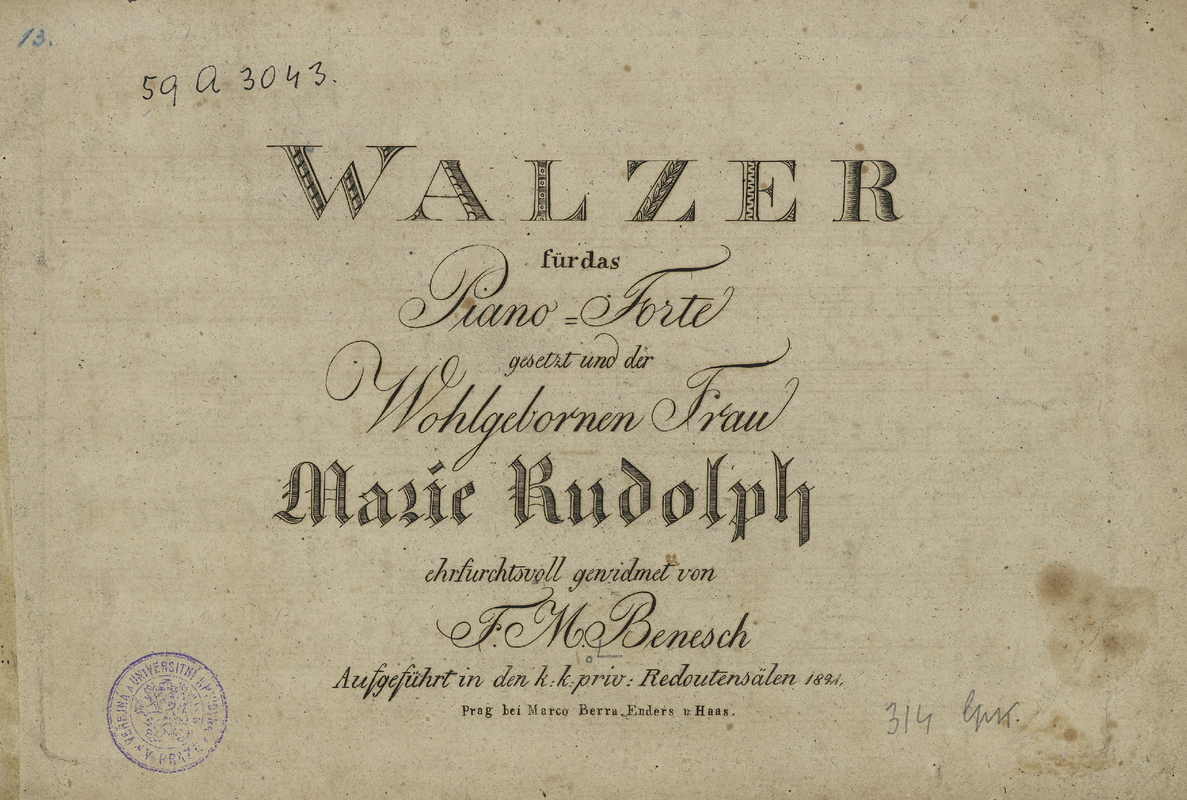 13.
59 A 3043.
WALZER
für das
Piano=Forte
gesetzt und der
Wohlgebornen Frau
Marie Rudolph
ehrfurchtsvoll gewidmet von
F. M. Benesch
Aufgeführt in den k: k. priv: Redoutensälen 1821.
Prag bei Marco Berra. Enders u Haas.
VEŘEJNÁ A UNIVERSITNÍ KNIHOVNA V PRAZE
314